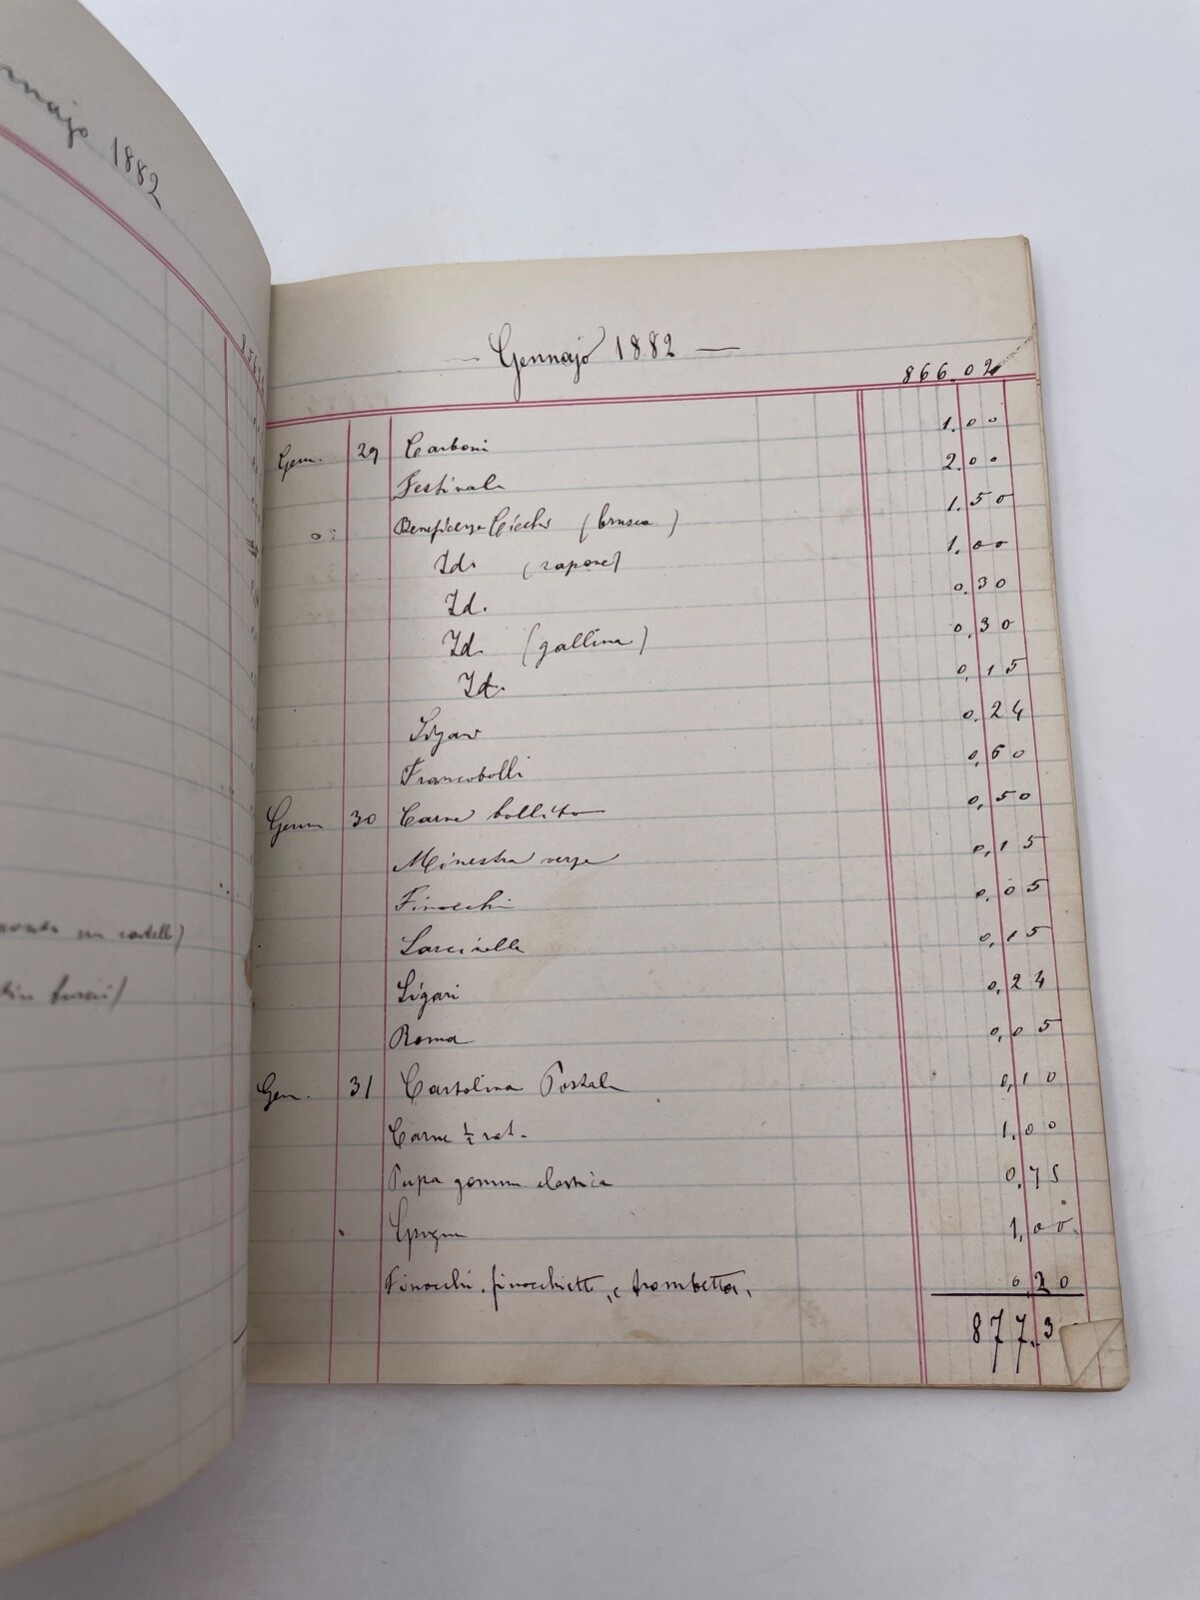 1882
mona un cartello)
Gennajo 1882
866.02
Genn. 29 Carboni 1.00
Festival 2.00
Beneficenza Ciechi (brusca) 1.50
Id. (sapone) 1.00
Id. 0.30
Id. (gallina) 0,30
Id. 0,15
Sigari 0.24
Francobolli 0,60
Genn 30 Carne bollita 0,50
Minestra verze 0,15
Finocchi 0,05
0,15
Sigari 0,24
Roma 0,05
Gen. 31 Cartolina Postale 0,10
Carne ½ rot. 1,00
Pupa gomma elastica 0,75
1,00
Finocchi, finocchietti, e trombetta, 0,20
877.3